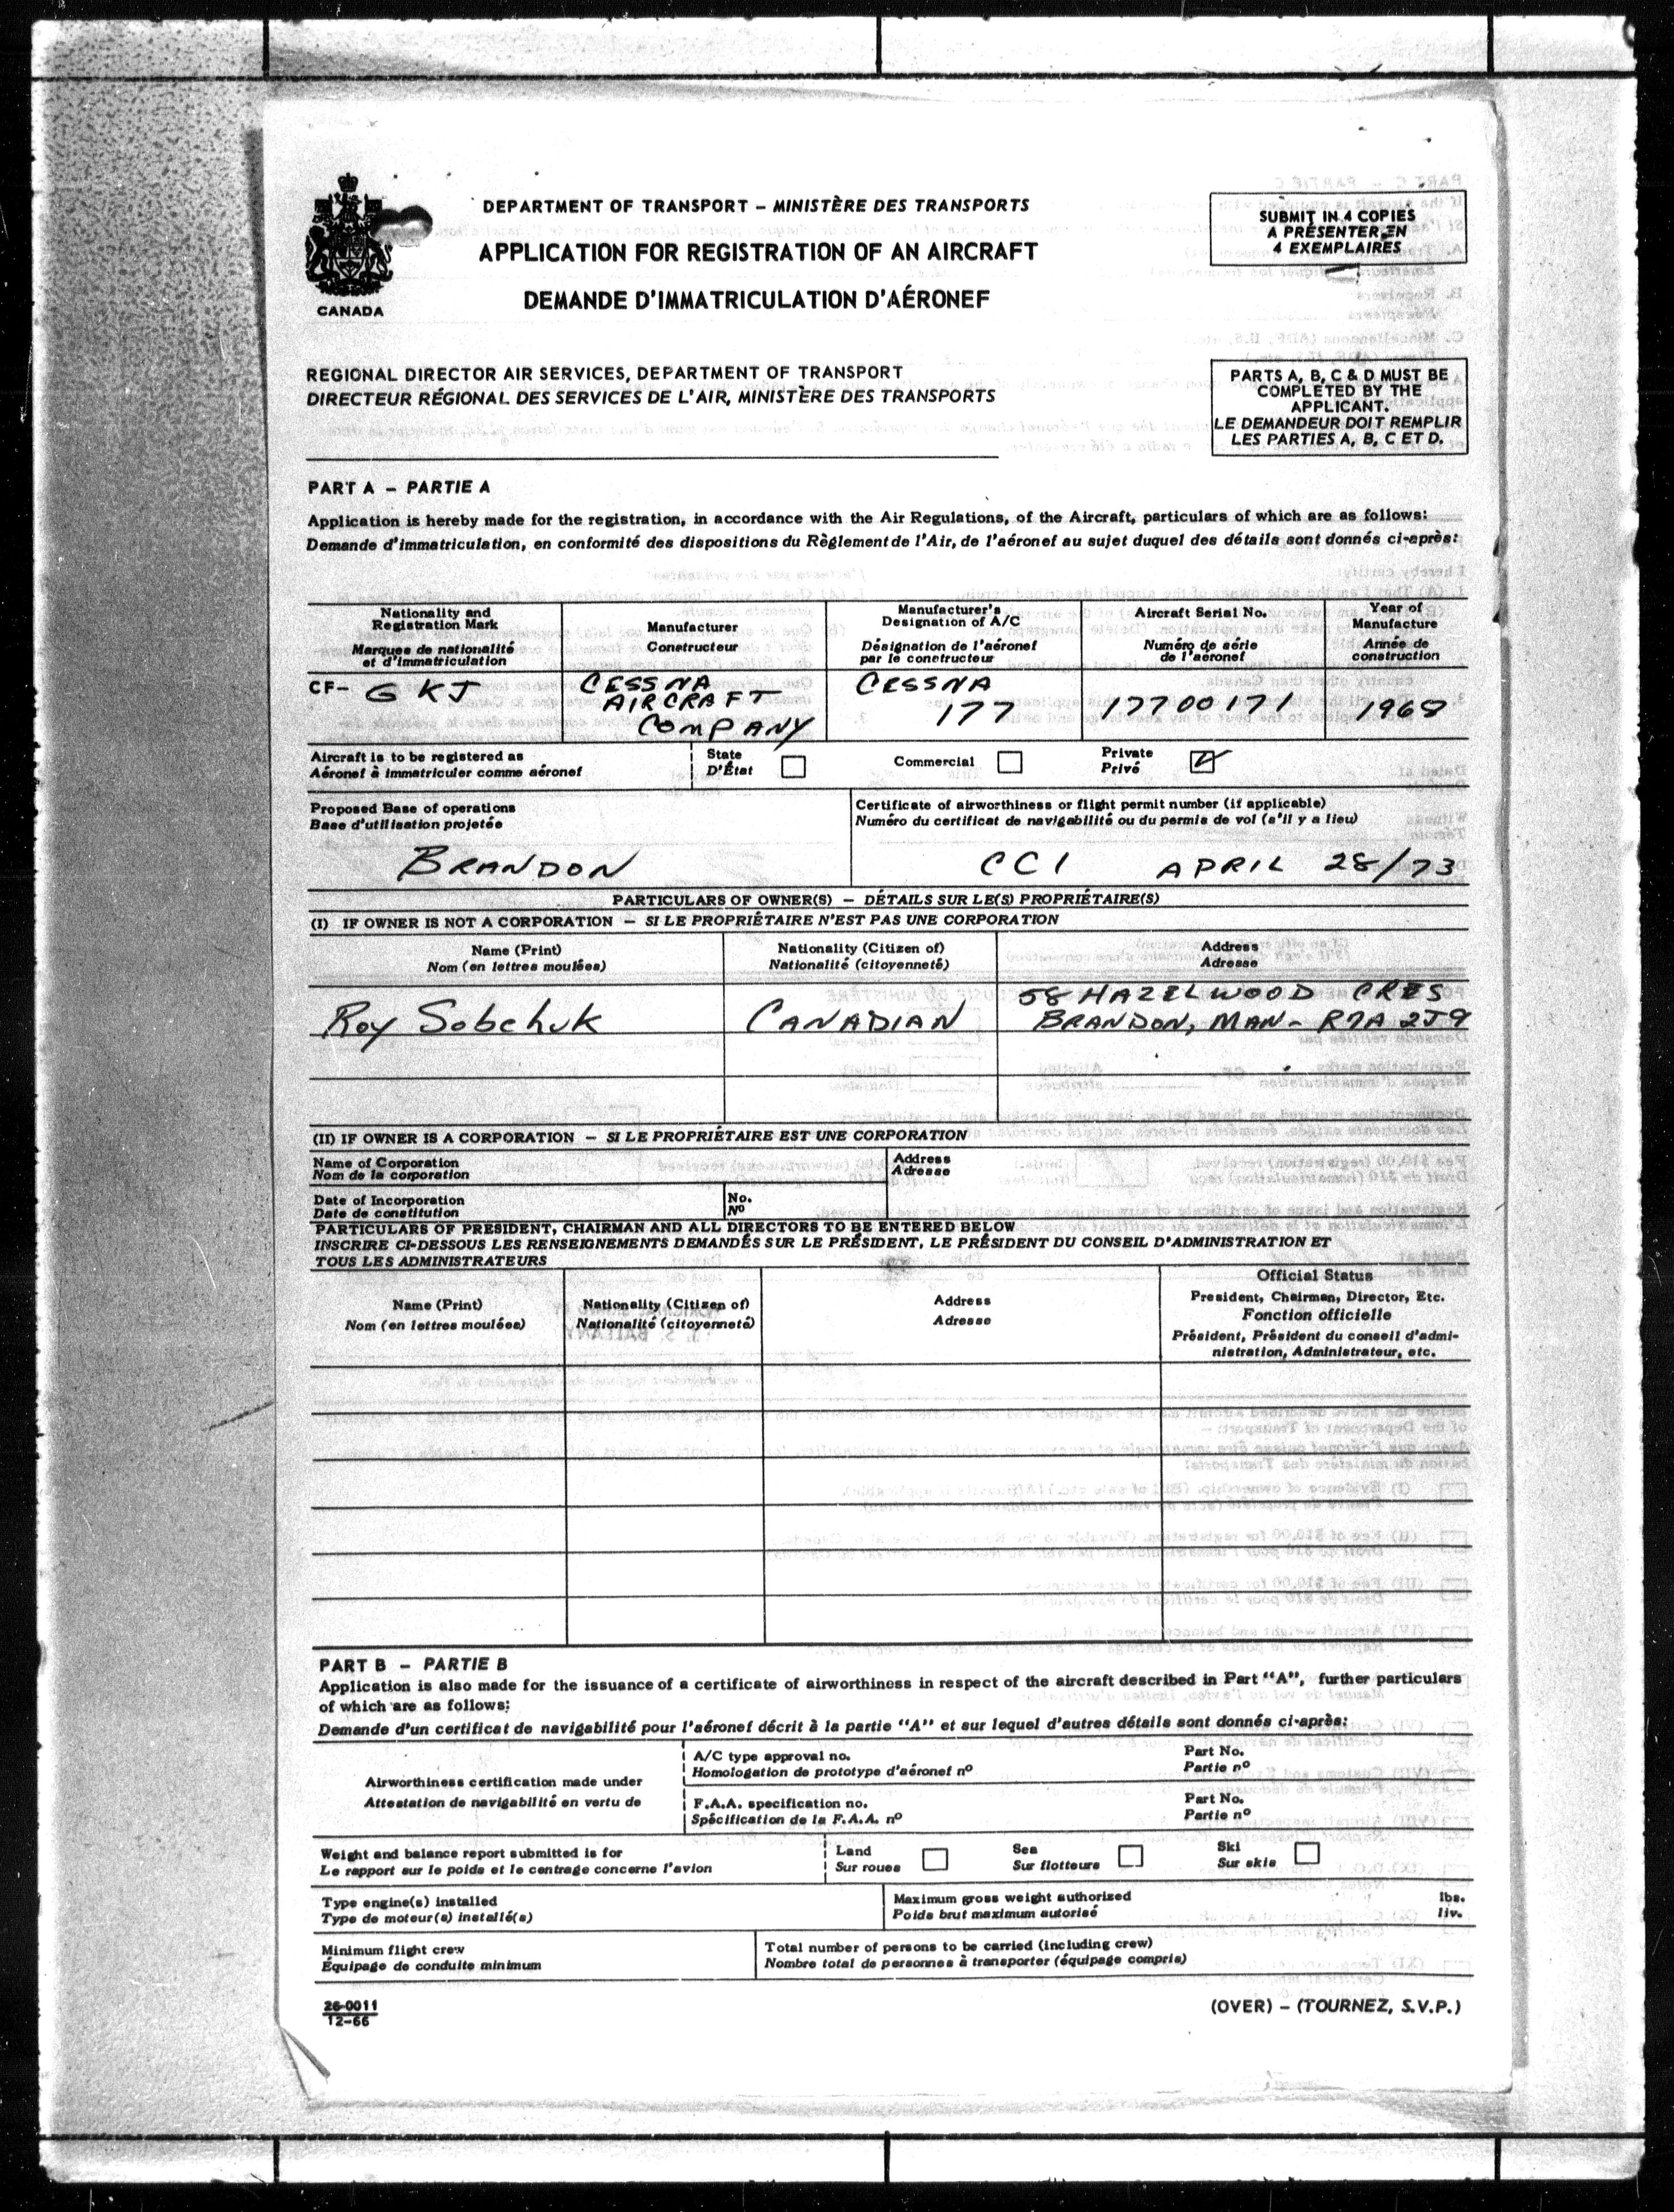 DEPARTMENT OF TRANSPORT – MINISTÈRE DES TRANSPORTS
APPLICATION FOR REGISTRATION OF AN AIRCRAFT
DEMANDE D'IMMATRICULATION D'AÉRONEF
CANADA
SUBMIT IN 4 COPIES
A PRÉSENTER EN
4 EXEMPLAIRES
REGIONAL DIRECTOR AIR SERVICES, DEPARTMENT OF TRANSPORT
DIRECTEUR RÉGIONAL DES SERVICES DE L'AIR, MINISTÈRE DES TRANSPORTS
PARTS A, B, C & D MUST BE
COMPLETED BY THE
APPLICANT.
LE DEMANDEUR DOIT REMPLIR
LES PARTIES A, B, C ET D.
PART A – PARTIE A
Application is hereby made for the registration, in accordance with the Air Regulations, of the Aircraft, particulars of which are as follows:
Demande d'immatriculation, en conformité des dispositions du Règlement de l'Air, de l'aéronef au sujet duquel des détails sont donnés ci-après:
Nationality and
Registration Mark
Marques de nationalité
et d'immatriculation
Manufacturer
Constructeur
Manufacturer's
Designation of A/C
Désignation de l'aéronef
par le constructeur
Aircraft Serial No.
Numéro de série
de l'aéronef
Year of
Manufacture
Année de
construction
CF- GKJ
CESSNA
AIRCRAFT
COMPANY
CESSNA
177
17700171
1968
Aircraft is to be registered as
Aéronef à immatriculer comme aéronef
State
D'État
Commercial
Private
Privé
Proposed Base of operations
Base d'utilisation projetée
BRANDON
Certificate of airworthiness or flight permit number (if applicable)
Numéro du certificat de navigabilité ou du permis de vol (s'il y a lieu)
CCI APRIL 28/73
PARTICULARS OF OWNER(S) – DÉTAILS SUR LE(S) PROPRIÉTAIRE(S)
(I) IF OWNER IS NOT A CORPORATION – SI LE PROPRIÉTAIRE N'EST PAS UNE CORPORATION
Name (Print)
Nom (en lettres moulées)
Nationality (Citizen of)
Nationalité (citoyenneté)
Address
Adresse
Roy Sobchuk
CANADIAN
58 HAZELWOOD CRES
BRANDON, MAN- R7A 2J9
(II) IF OWNER IS A CORPORATION – SI LE PROPRIÉTAIRE EST UNE CORPORATION
Name of Corporation
Nom de la corporation
Address
Adresse
Date of Incorporation
Date de constitution
No.
Nº
PARTICULARS OF PRESIDENT, CHAIRMAN AND ALL DIRECTORS TO BE ENTERED BELOW
INSCRIRE CI-DESSOUS LES RENSEIGNEMENTS DEMANDÉS SUR LE PRÉSIDENT, LE PRÉSIDENT DU CONSEIL D'ADMINISTRATION ET
TOUS LES ADMINISTRATEURS
Name (Print)
Nom (en lettres moulées)
Nationality (Citizen of)
Nationalité (citoyenneté)
Address
Adresse
Official Status
President, Chairman, Director, Etc.
Fonction officielle
Président, Président du conseil d'admi-
nistration, Administrateur, etc.
PART B – PARTIE B
Application is also made for the issuance of a certificate of airworthiness in respect of the aircraft described in Part "A", further particulars
of which are as follows:
Demande d'un certificat de navigabilité pour l'aéronef décrit à la partie "A" et sur lequel d'autres détails sont donnés ci-après:
Airworthiness certification made under
Attestation de navigabilité en vertu de
A/C type approval no.
Homologation de prototype d'aéronef nº
Part No.
Partie nº
F.A.A. specification no.
Spécification de la F.A.A. nº
Part No.
Partie nº
Weight and balance report submitted is for
Le rapport sur le poids et le centrage concerne l'avion
Land
Sur roues
Sea
Sur flotteurs
Ski
Sur skis
Type engine(s) installed
Type de moteur(s) installé(s)
Maximum gross weight authorized
Poids brut maximum autorisé
lbs.
liv.
Minimum flight crew
Équipage de conduite minimum
Total number of persons to be carried (including crew)
Nombre total de personnes à transporter (équipage compris)
26-0011
12-66
(OVER) – (TOURNEZ, S.V.P.)